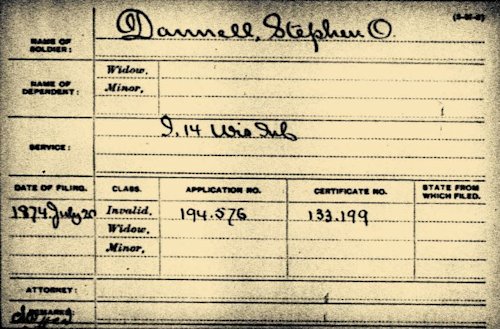 (3-36-2)
NAME OF SOLDIER: Dannell, Stephen O.
NAME OF DEPENDENT:
Widow,
Minor,
SERVICE: I. 14 Wis Inf
DATE OF FILING. CLASS. APPLICATION NO. CERTIFICATE NO. STATE FROM WHICH FILED.
1874. July 20 Invalid, 194.576 133.199
Widow,
Minor,
ATTORNEY:
REMARKS: